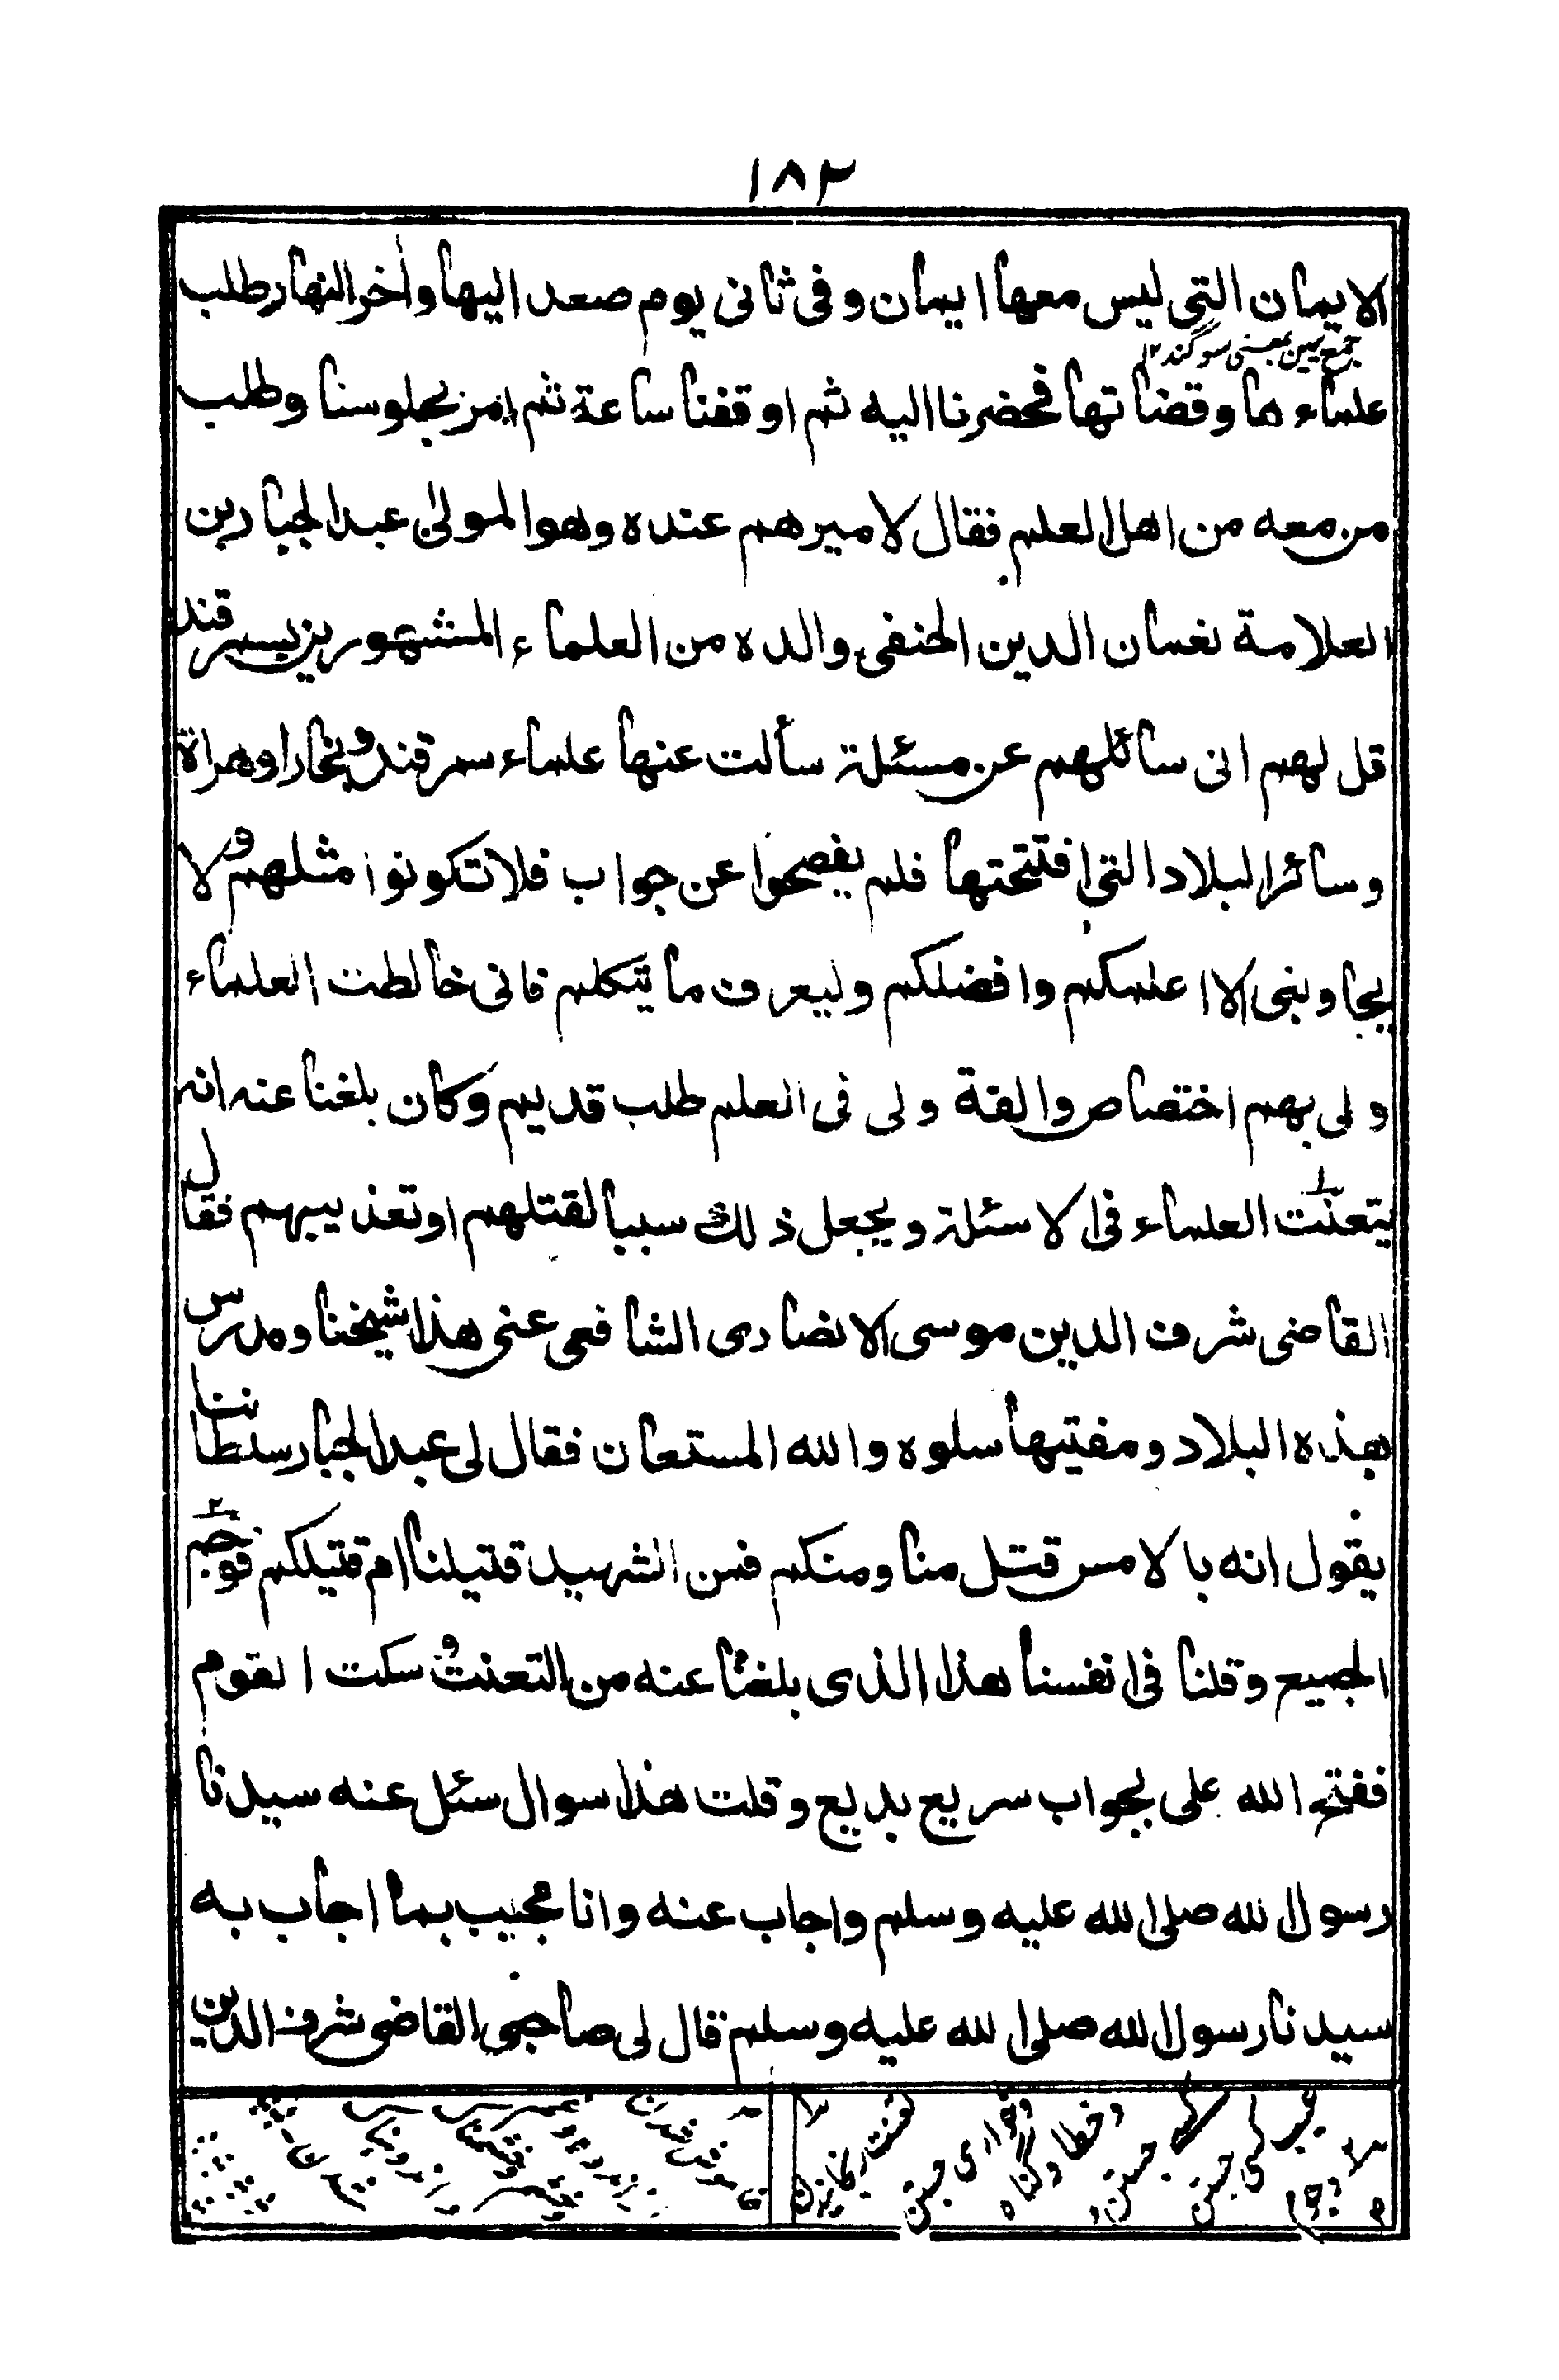 ١٨٢
الايمان التى ليس معها ايمان وفى ثانى يوم صعد اليها وأخر النهار طلب
جمع يمين بمعنى سوگند ١٢
علماءها وقضاتها فحضرنا اليه ثم اوقفنا ساعة ثم امر بجلوسنا وطلب
من معه من اهل العلم فقال لاميرهم عنده وهو المولى عبد الجبار بن
العلامة نعمان الدين الحنفى والده من العلماء المشهورين بسمرقند
قل لهم انى سائلهم عن مسئلة سألت عنها علماء سمرقند وبخارا وهراة
وسائر البلاد التى افتتحتها فلم يفصحوا عن جواب فلا تكونوا مثلهم ولا
يجاوبنى الا اعلمكم وافضلكم وليعرف ما يتكلم فانى خالطت العلماء
ولى بهم اختصاص والفة ولى فى العلم طلب قديم وكان بلغنا عنه انه
يتعنت العلماء فى الاسئلة ويجعل ذلك سببا لقتلهم او تعذيبهم فقال
القاضى شرف الدين موسى الانصارى الشافعى عنى هذا شيخنا ومدرس
هذه البلاد ومفتيها سلوه والله المستعان فقال لى عبد الجبار سلطاننا
يقول انه بالامس قتل منا ومنكم فمن الشهيد قتيلنا ام قتيلكم فوجم
الجميع وقلنا فى انفسنا هذا الذى بلغنا عنه من التعنت وسكت القوم
ففتح الله على بجواب سريع بديع وقلت هذا سوال سئل عنه سيدنا
رسول الله صلى الله عليه وسلم واجاب عنه وانا مجيب بما اجاب به
سيدنا رسول الله صلى الله عليه وسلم قال لى صاحبى القاضى شرف الدين